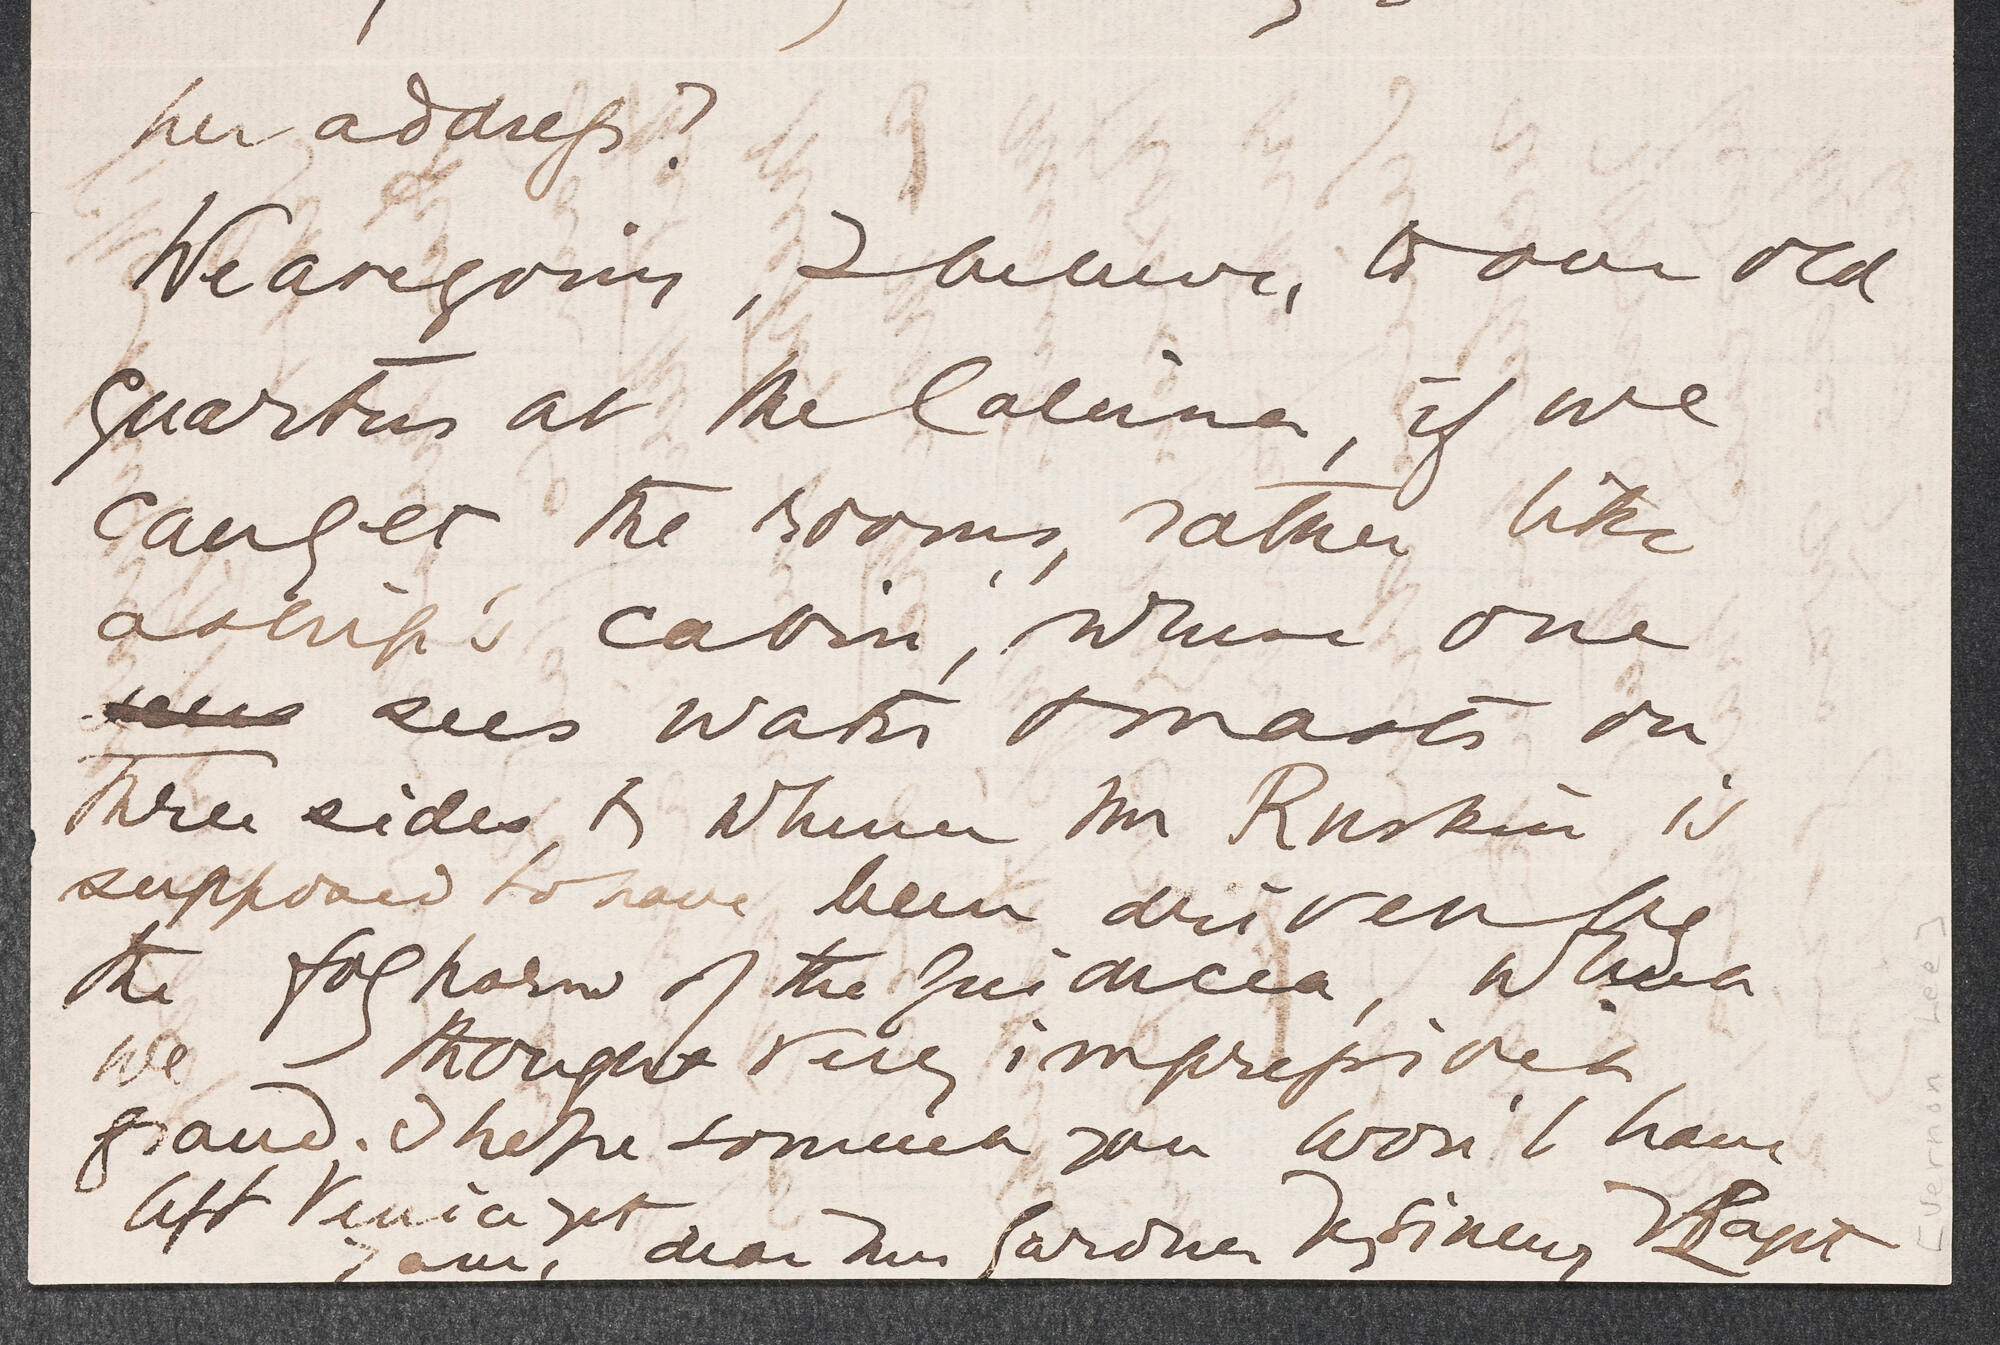 her address?
We are going, I believe, to our old
quarters at the Calcina, if we
can get the rooms, rather like
a ship's cabin, where one
sees water & masts on
three sides & whence Mr Ruskin is
supposed to have been driven by
the foghorn of the Giudecca, which
we thought very impressive &
grand. I hope so much you won't have
left Venice yet
I am, dear Mrs Gardner Yrs sincerely V Paget
[Vernon Lee]